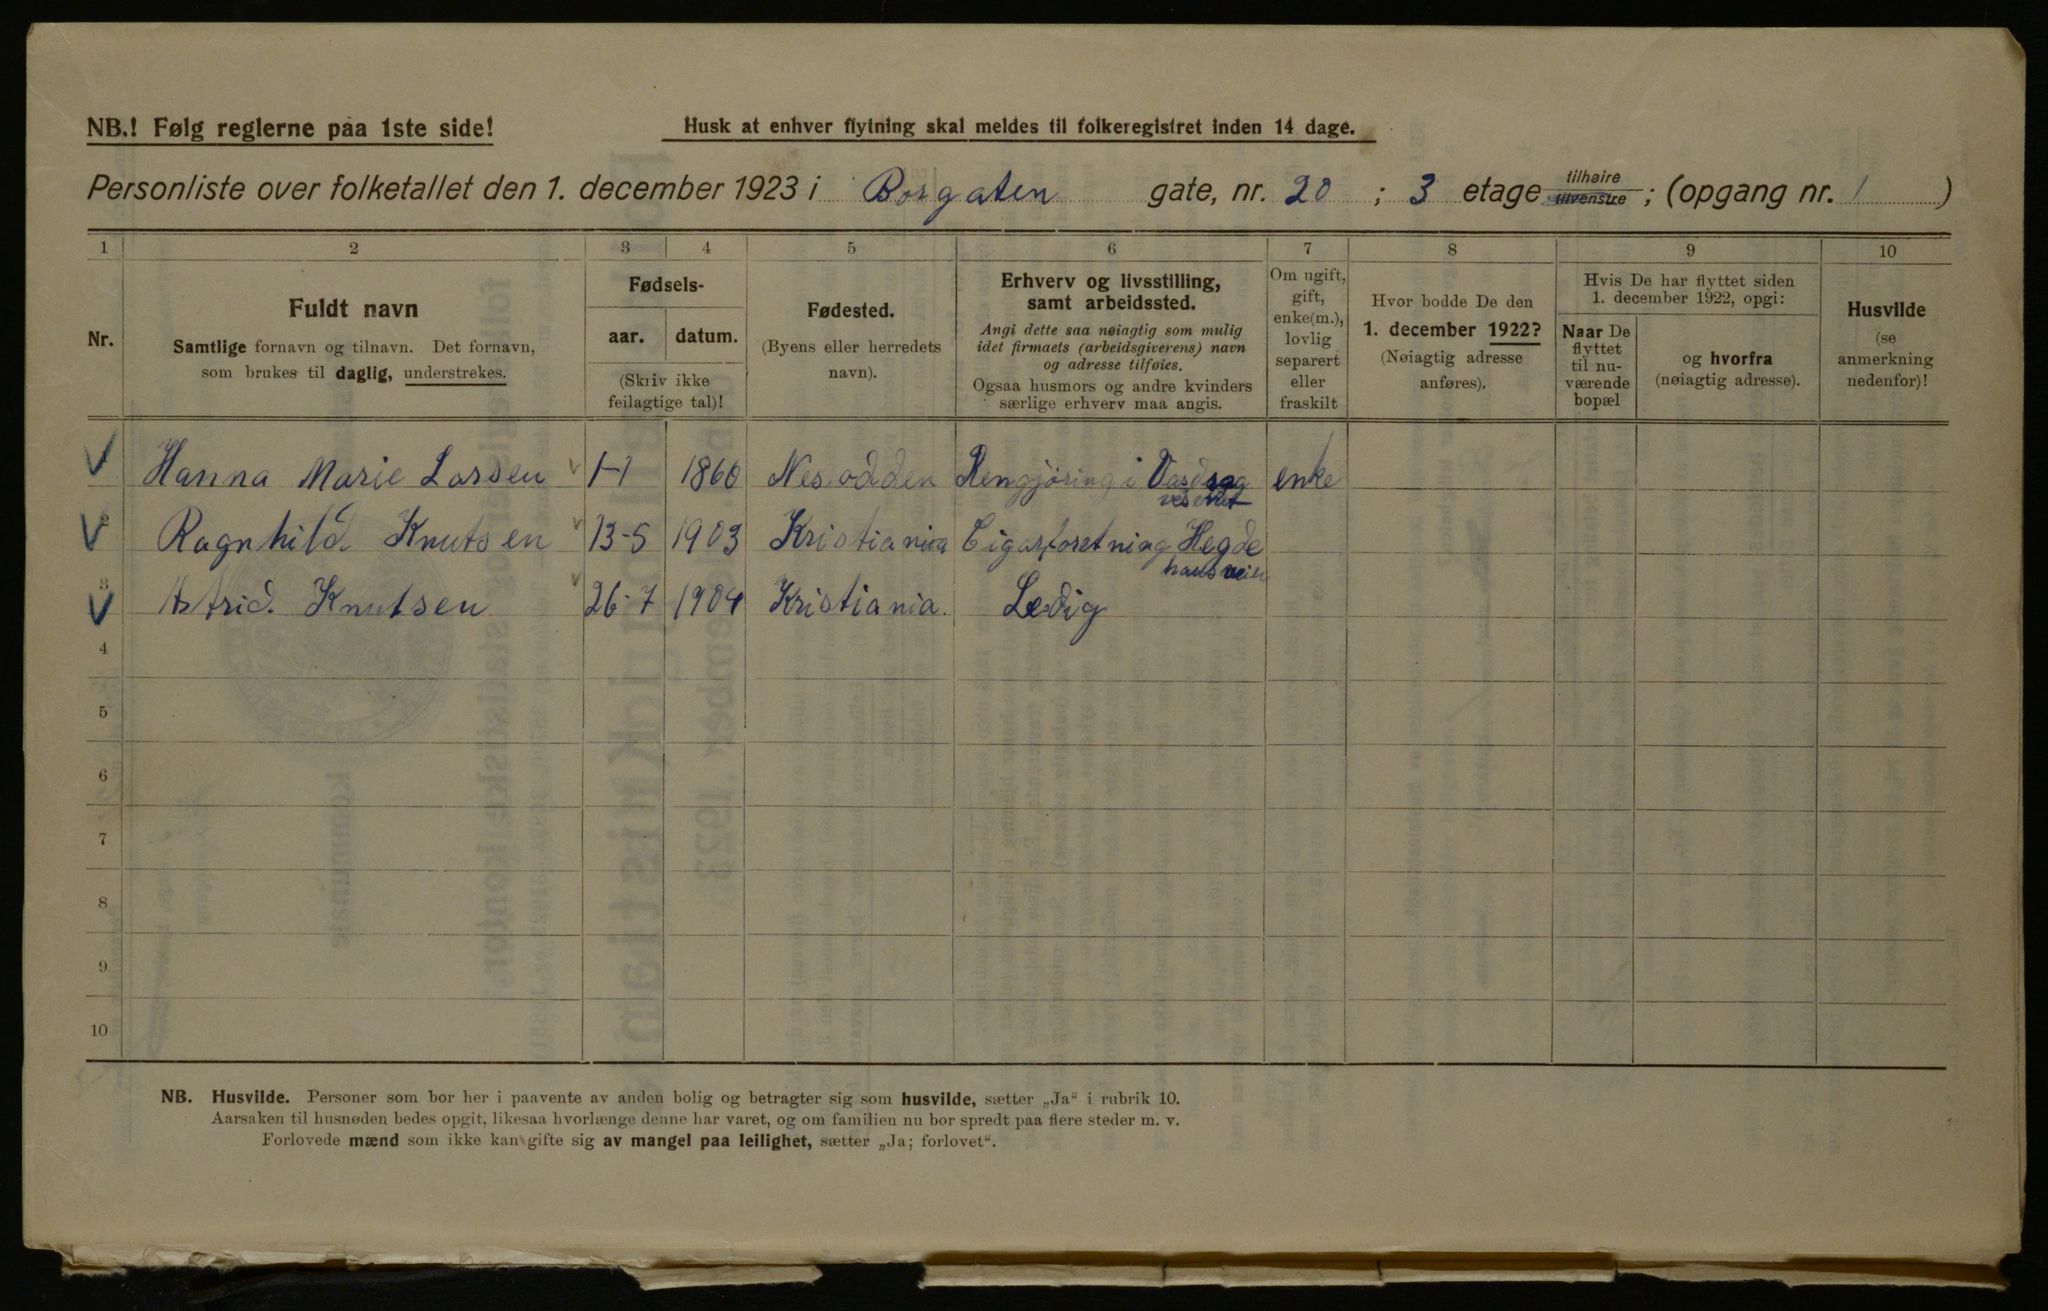 NB.! Følg reglerne paa 1ste side!
Husk at enhver flytning skal meldes til folkeregistret inden 14 dage.
Personliste over folketallet den 1. december 1923 i Borgaten gate, nr. 20 ; 3 etage tilhøire tilvenstre ; (opgang nr. 1 )
1 2 3 4 5 6 7 8 9 10
Nr.
Fuldt navn
Samtlige fornavn og tilnavn. Det fornavn,
som brukes til daglig, understrekes.
Fødsels-
aar. datum.
(Skriv ikke
feilagtige tal)!
Fødested.
(Byens eller herredets
navn).
Erhverv og livsstilling,
samt arbeidssted.
Angi dette saa nøiagtig som mulig
idet firmaets (arbeidsgiverens) navn
og adresse tilføies.
Ogsaa husmors og andre kvinders
særlige erhverv maa angis.
Om ugift,
gift,
enke(m.),
lovlig
separert
eller
fraskilt
Hvor bodde De den
1. december 1922?
(Nøiagtig adresse
anføres).
Hvis De har flyttet siden
1. december 1922, opgi:
Naar De
flyttet
til nu-
værende
bopæl
og hvorfra
(nøiagtig adresse).
Husvilde
(se
anmerkning
nedenfor)!
Hanna Marie Larsen 1-1 1860 Nesodden Rengjøring i enke
vesenet
2 Ragnhild Knutsen 13-5 1903 Kristiania Cigarforetning Hegde
haus vein
3 Astrid. Knutsen 26-7 1904 Kristiania. Ledig
4
5
6
7
8
9
10
NB. Husvilde. Personer som bor her i paavente av anden bolig og betragter sig som husvilde, sætter „Ja“ i rubrik 10.
Aarsaken til husnøden bedes opgit, likesaa hvorlænge denne har varet, og om familien nu bor spredt paa flere steder m. v.
Forlovede mænd som ikke kan gifte sig av mangel paa leilighet, sætter „Ja; forlovet“.